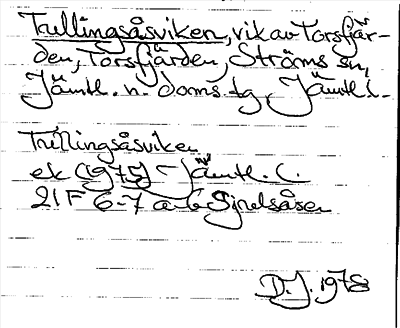 Trullingsåsviken, vik av Torsfjär-
den, Torsfjärden, Ströms sn,
Jämtl. n. doms. tg, Jämtl. l.
Trullingsåsviken
ek (1974) Jämtl. l.
21F 6-7 a-b Sjnelsåsen
D.J. 1978